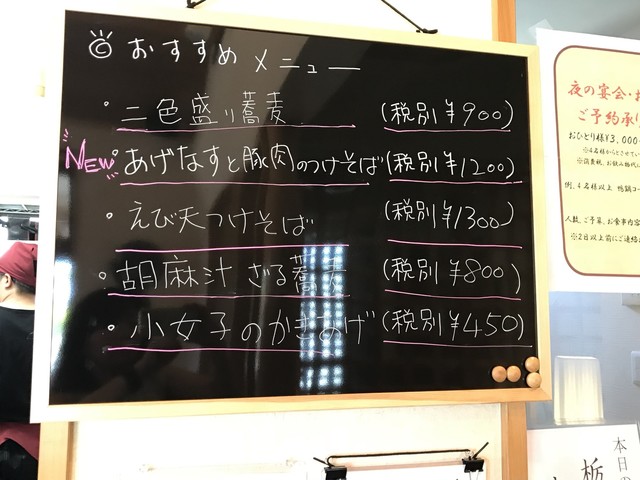 © おすすめ メニュー
・二色盛り蕎麦 (税別¥900)
NEW ・あげなすと豚肉のつけそば (税別¥1200)
・えび天つけそば (税別¥1300)
・胡麻汁 ざる蕎麦 (税別¥800)
・小女子のかきあげ (税別¥450)
夜の宴会・お
ご予約承り
おひとり様¥3,000
※4名様からとさせてい
※消費税、お飲み物代
例.4名様以上 鴨鍋コー
人数、ご予算、お食事内容
※2日以上前にご連絡
本日の
栃